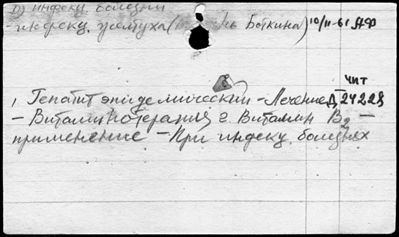 инфекц. болезни
- инфекц. желтуха (нь Боткина) 10/II-61 ДФ
чит
1, Гепатит эпидемический - Лечение Д24228
- Витаминотерапия 2. Витамин B2 -
применение - При инфекц. болезнях